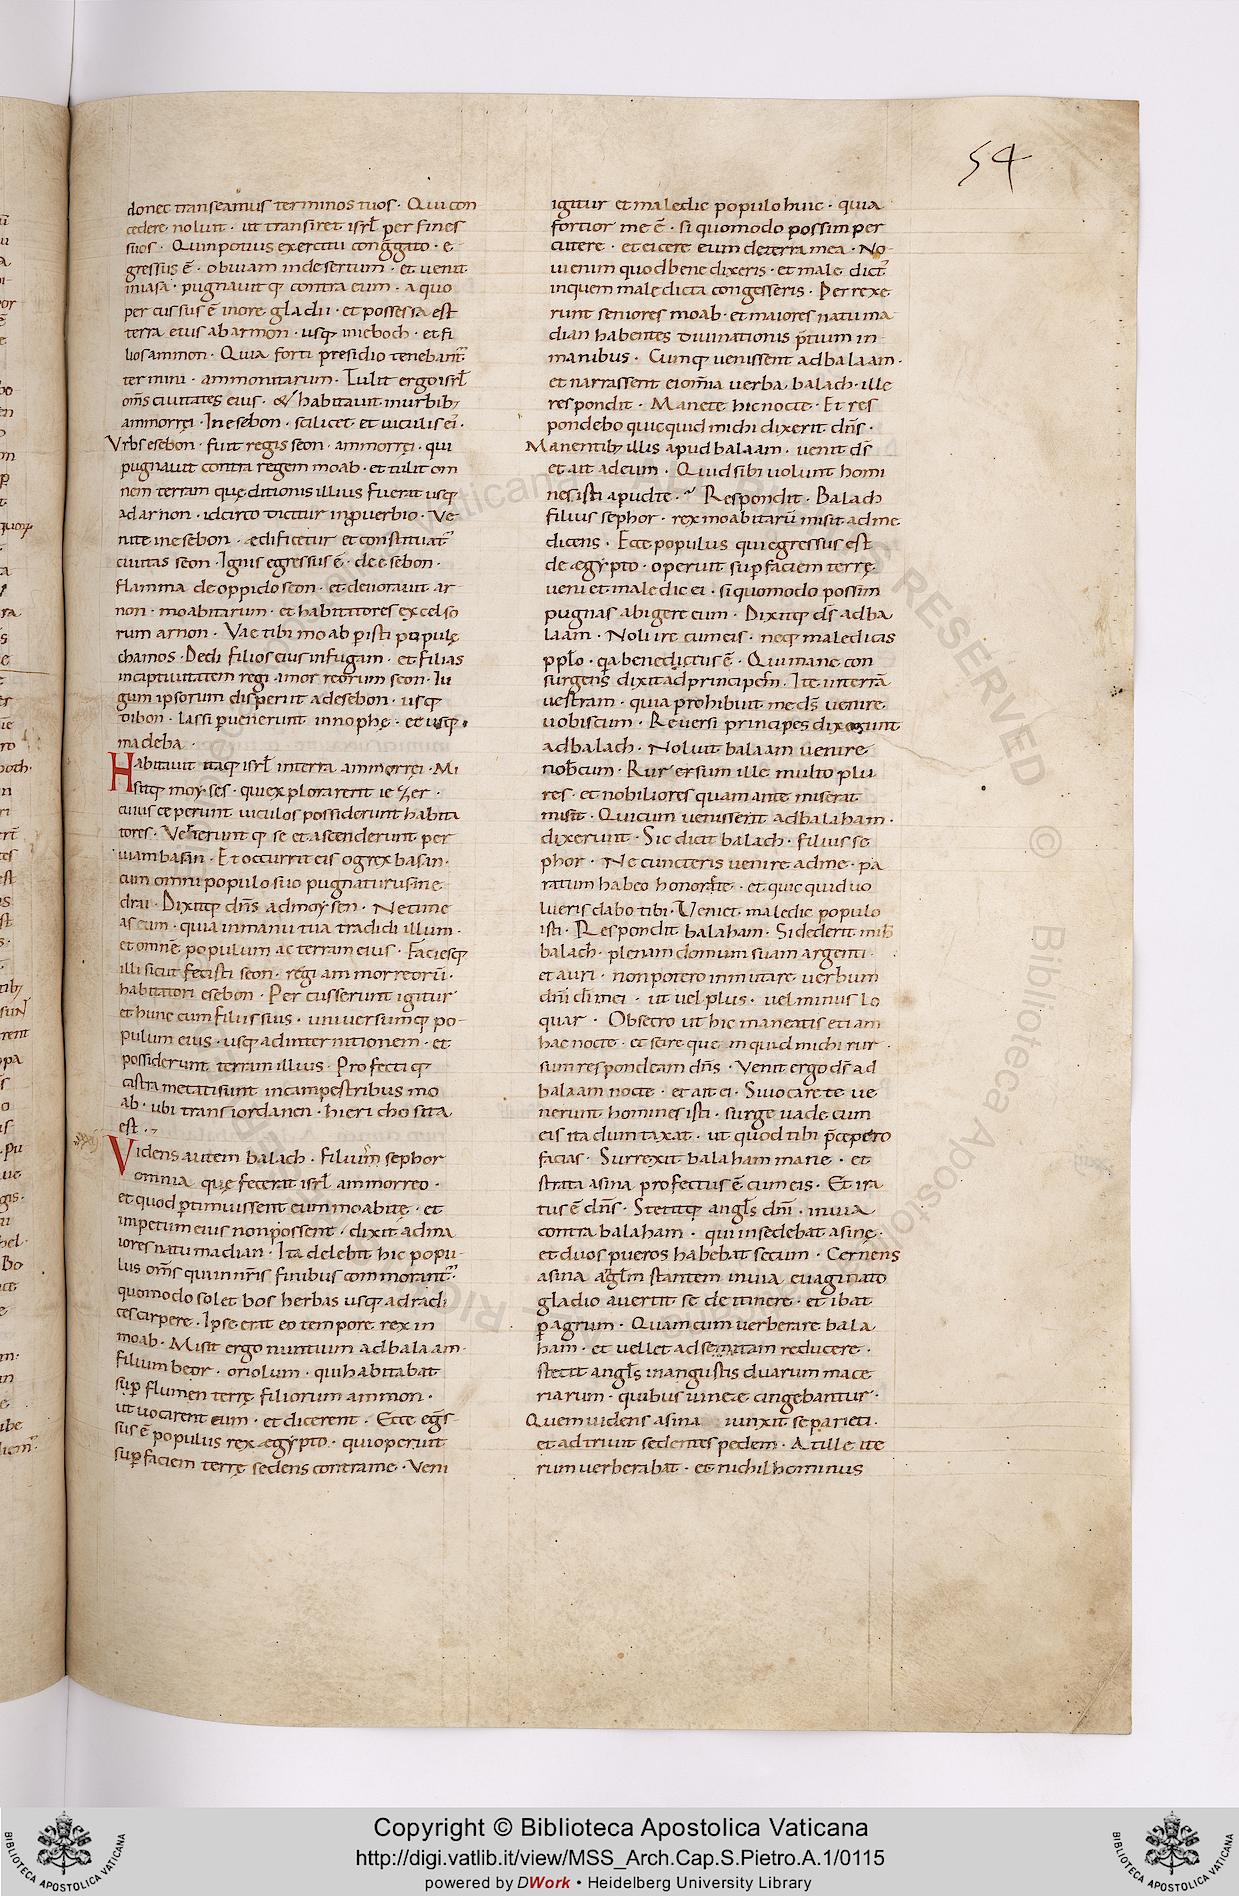 54
donec transeamus terminos tuos · Qui con
cedere noluit · ut transiret isrł per fines
suos · Quin potius exercitu conggato · e
gressus ē · obuiam in desertum · et uenit
iniasa · pugnauit q; contra eum · a quo
per cussus ē inore gladii · et possessa est
terra eius ab arnon · usq; inieboch · et fi
lios ammon · Quia forti presidio tenebant̄
termini · ammonitarum · Tulit ergo isrł
om̄s ciuitates eius · & habitauit in urbib;
ammorręi · In esebon · scilicet et uiculis ei᾿ ·
Vrbs esebon · fuit regis seon · ammorręi · qui
pugnauit contra regem moab · et tulit om
nem terram quę ditionis illius fuerat usq;
ad arnon · idcirco dicitur in ꝓuerbio · Ve
nite in esebon · ędificetur et construat᾿
ciuitas seon · Ignis egressus ē · de esebon ·
flamma de oppido seon · et deuorauit ar
non · moabitarum · et habitatores excelso
rum arnon · Vae tibi moab ꝑisti populę
chamos · Dedi filios eius in fugam · et filias
in captiuitatem regi amorreorum seon · Iu
gum ipsorum disperiit ad esebon · usq;
dibon · lassi ꝑuenerunt in nophę · et usq;
madeba ·
Habitauit itaq; isrł in terra ammorręi · Mi
sitq; moyses · qui explorarent iezer ·
cuius ceperunt uiculos possiderunt habita
tores · Verterunt q; se et ascenderunt per
uiam basan · Et occurrit eis og rex basan ·
cum omni populo suo pugnaturus in e
drai · Dixitq; dn̄s ad moysen · Ne time
as eum · quia in manu tua tradidi illum ·
et omnē populum ac terram eius · Faciesq;
illi sicut fecisti seon · regi ammorreorū ·
habitatori esebon · Percusserunt igitur
et hunc cum filiis suis · uniuersumq; po
pulum eius · usq; ad internitionem · et
possiderunt terram illius · Profecti q;
castra metati sunt in campestribus mo
ab · ubi trans iordanen · hiericho sita
est ·
Videns autem balach · filium sephor
omnia quę fecerat isrł ammorreo ·
et quod ꝑtimuissent eum moabitę · et
impetum eius non possent · dixit ad ma
iores natu madian · Ita delebit hic popu
lus om̄s qui in nr̄is finibus commorant᾿ ·
quomodo solet bos herbas usq; ad radi
ces cirpere · Ipse erat eo tempore rex in
moab · Misit ergo nuntium ad balaam ·
filium beor · oriolum · qui habitabat
suꝑ flumen terrę filiorum ammon ·
ut uocarent eum · et dicerent · Ecce egs
sus ē populus rex ęgypto · qui operuit
suꝑfaciem terrę sedens contra me · Veni
igitur et maledic populo huic · quia
fortior me ē · si quomodo possim per
cutere · et eicere eum de terra mea · No
ui enim quod bene dixeris · et male dict᾿
in quem maledicta congesseris · Perrexe
runt seniores moab · et maiores natu ma
dian habentes diuinationis p̄tium in
manibus · Cumq; uenissent ad balaam ·
et narrassent ei om̄ia uerba balach · ille
respondit · Manete hic nocte · Et res
pondebo quicquid michi dixerit dn̄s ·
Manentib; illis apud balaam · uenit ds̄
et ait ad eum · Quid sibi uolunt homi
nes isti apud te · Respondit · Balach
filius sephor · rex moabitarū misit ad me
dicens · Ecce populus qui egressus est
de ęgypto · operuit suꝑfaciem terrę
ueni et maledic ei · si quomodo possim
pugnas abigere eum · Dixitq; ds̄ ad ba
laam · Noli ire cum eis · neq; maledicas
ppłо · qa benedictus ē · Qui mane con
surgens dixit ad principem · Ite in terrā
uestram · quia prohibuit me ds̄ uenire
uobiscum · Reuersi principes dixerunt
ad balach · Noluit balaam uenire
nobcum · Rursum ille multo plu
res · et nobiliores quam ante miserat
misit · Qui cum uenissent ad balaham ·
dixerunt · Sic dicit balach · filius se
phor · Ne cuncteris uenire ad me · pa
ratum habeo honorare · et quicquid uo
lueris dabo tibi · Veni et maledic populo
isti · Respondit balaham · Si dederit mihi
balach · plenam domum suam argenti ·
et auri · non potero inmutare uerbum
dn̄i di mei · ut uel plus · uel minus lo
quar · Obsecro ut hic maneatis etiam
hac nocte · et scire queam quid michi rur
sum respondeam dn̄s · Venit ergo ds̄ ad
balaam nocte · et ait ei · Si uocare te ue
nerunt homines isti · surge uade cum
eis ita dumtaxat · ut quod tibi p̄cepero
facias · Surrexit balaham mane · et
strata asina profectus ē cum eis · Et ira
tus ē dn̄s · Stetitq; angls dn̄i · in uia
contra balaham · qui insedebat asinę
et duos pueros habebat secum · Cernens
asina angłm stantem in uia euaginato
gladio auertit se de itinere · et ibat
ꝑ agrum · Quam cum uerberare bala
ham · et uellet ad semitam reducere ·
stetit angls in angustis duarum mace
riarum · quibus uineae cingebantur ·
Quem uidens asina iunxit se parieti ·
et adtriuit sedentes pedem · At ille ite
rum uerberabat · et nichilhominus
Copyright © Biblioteca Apostolica Vaticana
http://digi.vatlib.it/view/MSS_Arch.Cap.S.Pietro.A.1/0115
powered by DWork • Heidelberg University Library
BIBLIOTECA APOSTOLICA VATICANA
BIBLIOTECA APOSTOLICA VATICANA